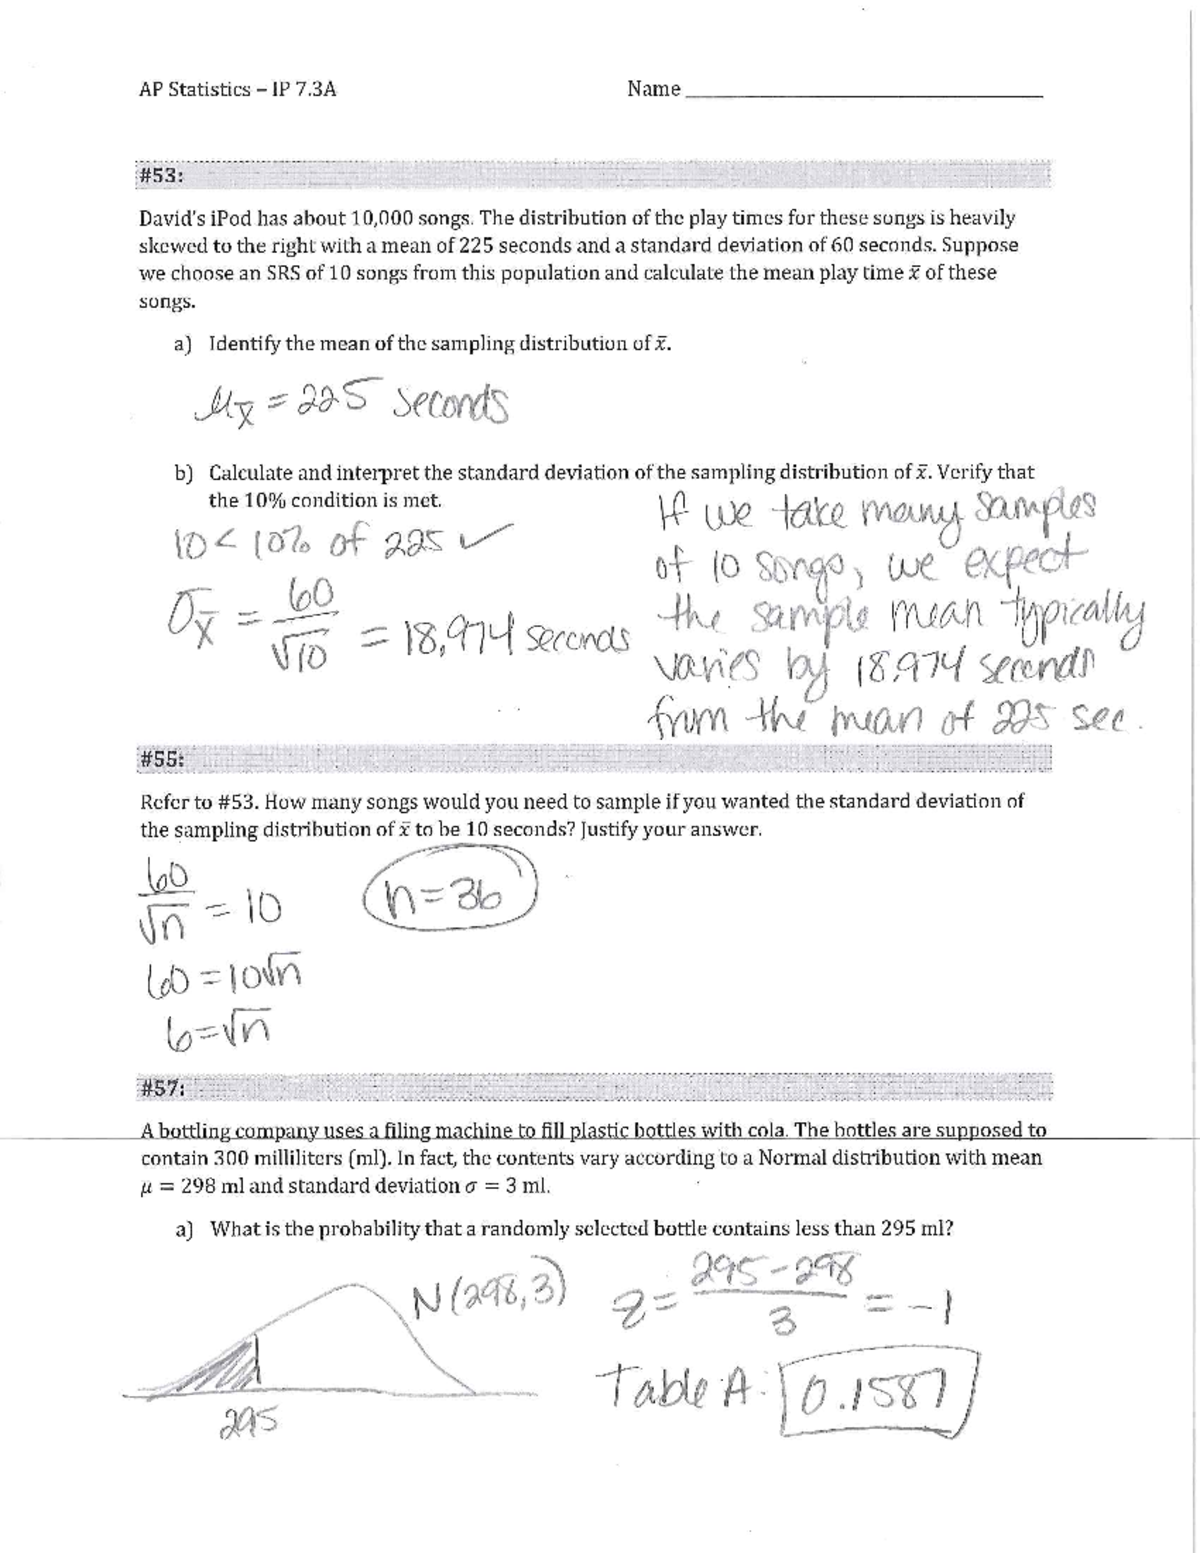 AP Statistics – IP 7.3A Name
#53:
David's iPod has about 10,000 songs. The distribution of the play times for these songs is heavily
skewed to the right with a mean of 225 seconds and a standard deviation of 60 seconds. Suppose
we choose an SRS of 10 songs from this population and calculate the mean play time x̄ of these
songs.
a) Identify the mean of the sampling distribution of x̄.
μx̄ = 225 seconds
b) Calculate and interpret the standard deviation of the sampling distribution of x̄. Verify that
the 10% condition is met.
10 < 10% of 225 ✓
σx̄ = 60/√10 = 18.974 seconds
If we take many samples
of 10 songs, we expect
the sample mean typically
varies by 18.974 seconds
from the mean of 225 sec.
#55:
Refer to #53. How many songs would you need to sample if you wanted the standard deviation of
the sampling distribution of x̄ to be 10 seconds? Justify your answer.
60/√n = 10
n=36
60=10√n
6=√n
#57:
A bottling company uses a filing machine to fill plastic bottles with cola. The bottles are supposed to
contain 300 milliliters (ml). In fact, the contents vary according to a Normal distribution with mean
μ = 298 ml and standard deviation σ = 3 ml.
a) What is the probability that a randomly selected bottle contains less than 295 ml?
N(298,3)
z = (295-298)/3 = -1
Table A: 0.1587
295